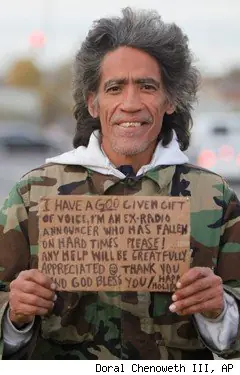 I HAVE A GOD GIVEN GIFT
OF VOICE. I'M AN EX-RADIO
ANNOUNCER WHO HAS FALLEN
ON HARD TIMES. PLEASE!
ANY HELP WILL BE GREATFULLY
APPRECIATED @ THANK YOU
AND GOD BLESS YOU. / HAPPY
HOLIDAY
Doral Chenoweth III, AP